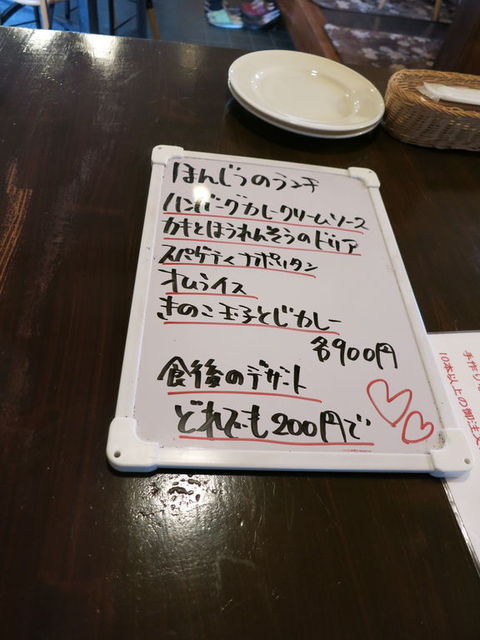 ほんじつのランチ
ハンバーグカレークリームソース
カキとほうれんそうのドリア
スパゲティナポリタン
オムライス
きのこ玉子とじカレー
各900円
食後のデザート
どれでも200円で
手作り
10本以上の御注文